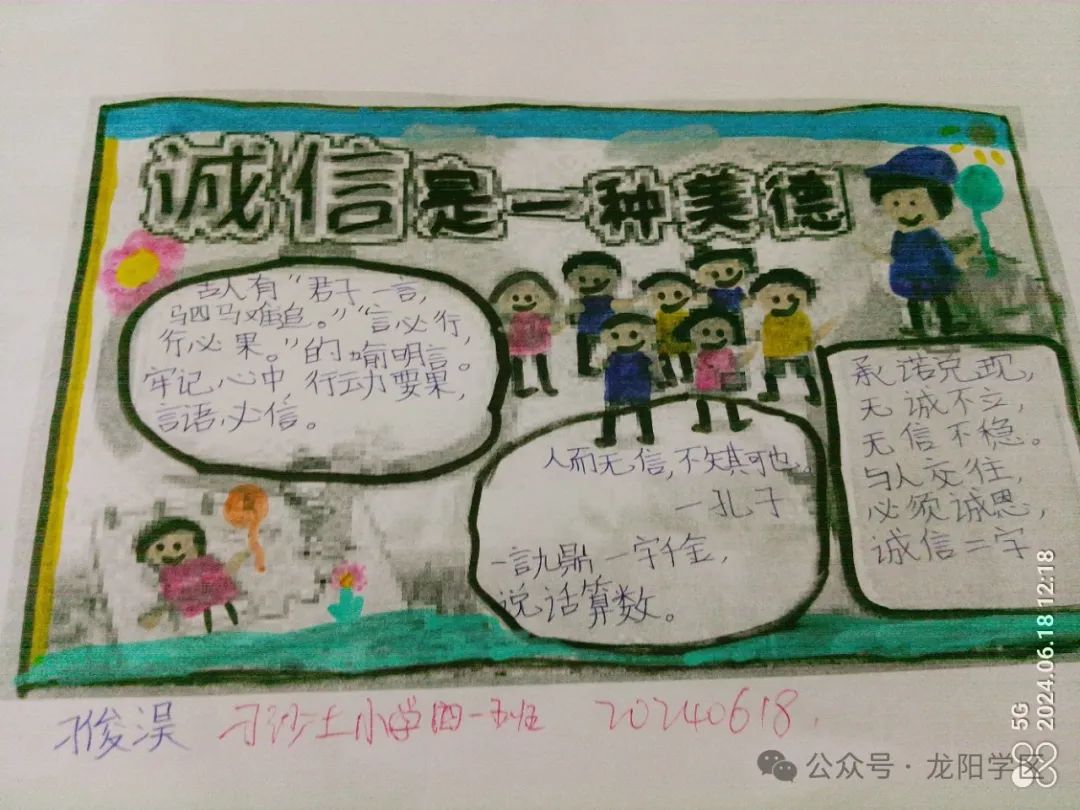 诚信是一种美德
古人有“君子一言，
驷马难追。”“言必行，
行必果。”的喻明言。
牢记心中，行动要果，
言语必信。
人而无信，不知其可也。
一孔子
一言九鼎一字千金，
说话算数。
承诺兑现，
无诚不立，
无信不稳。
与人交往，
必须诚恳，
诚信二字
俊淏 刁沙土小学四一五班 20240618.
5G 2024.06.18 12:18
公众号·龙阳学区